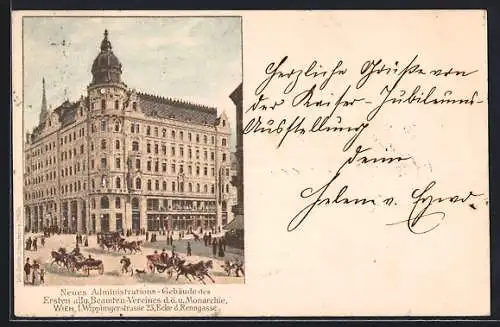 Herzliche Grüße von
der Kaiser-Jubileums-
Ausstellung
deine
Helene v.
Neues Administrations-Gebäude des
Ersten allg. Beamten-Vereines d. ö. u. Monarchie,
WIEN, I. Wipplingerstrasse 25, Ecke d. Renngasse.